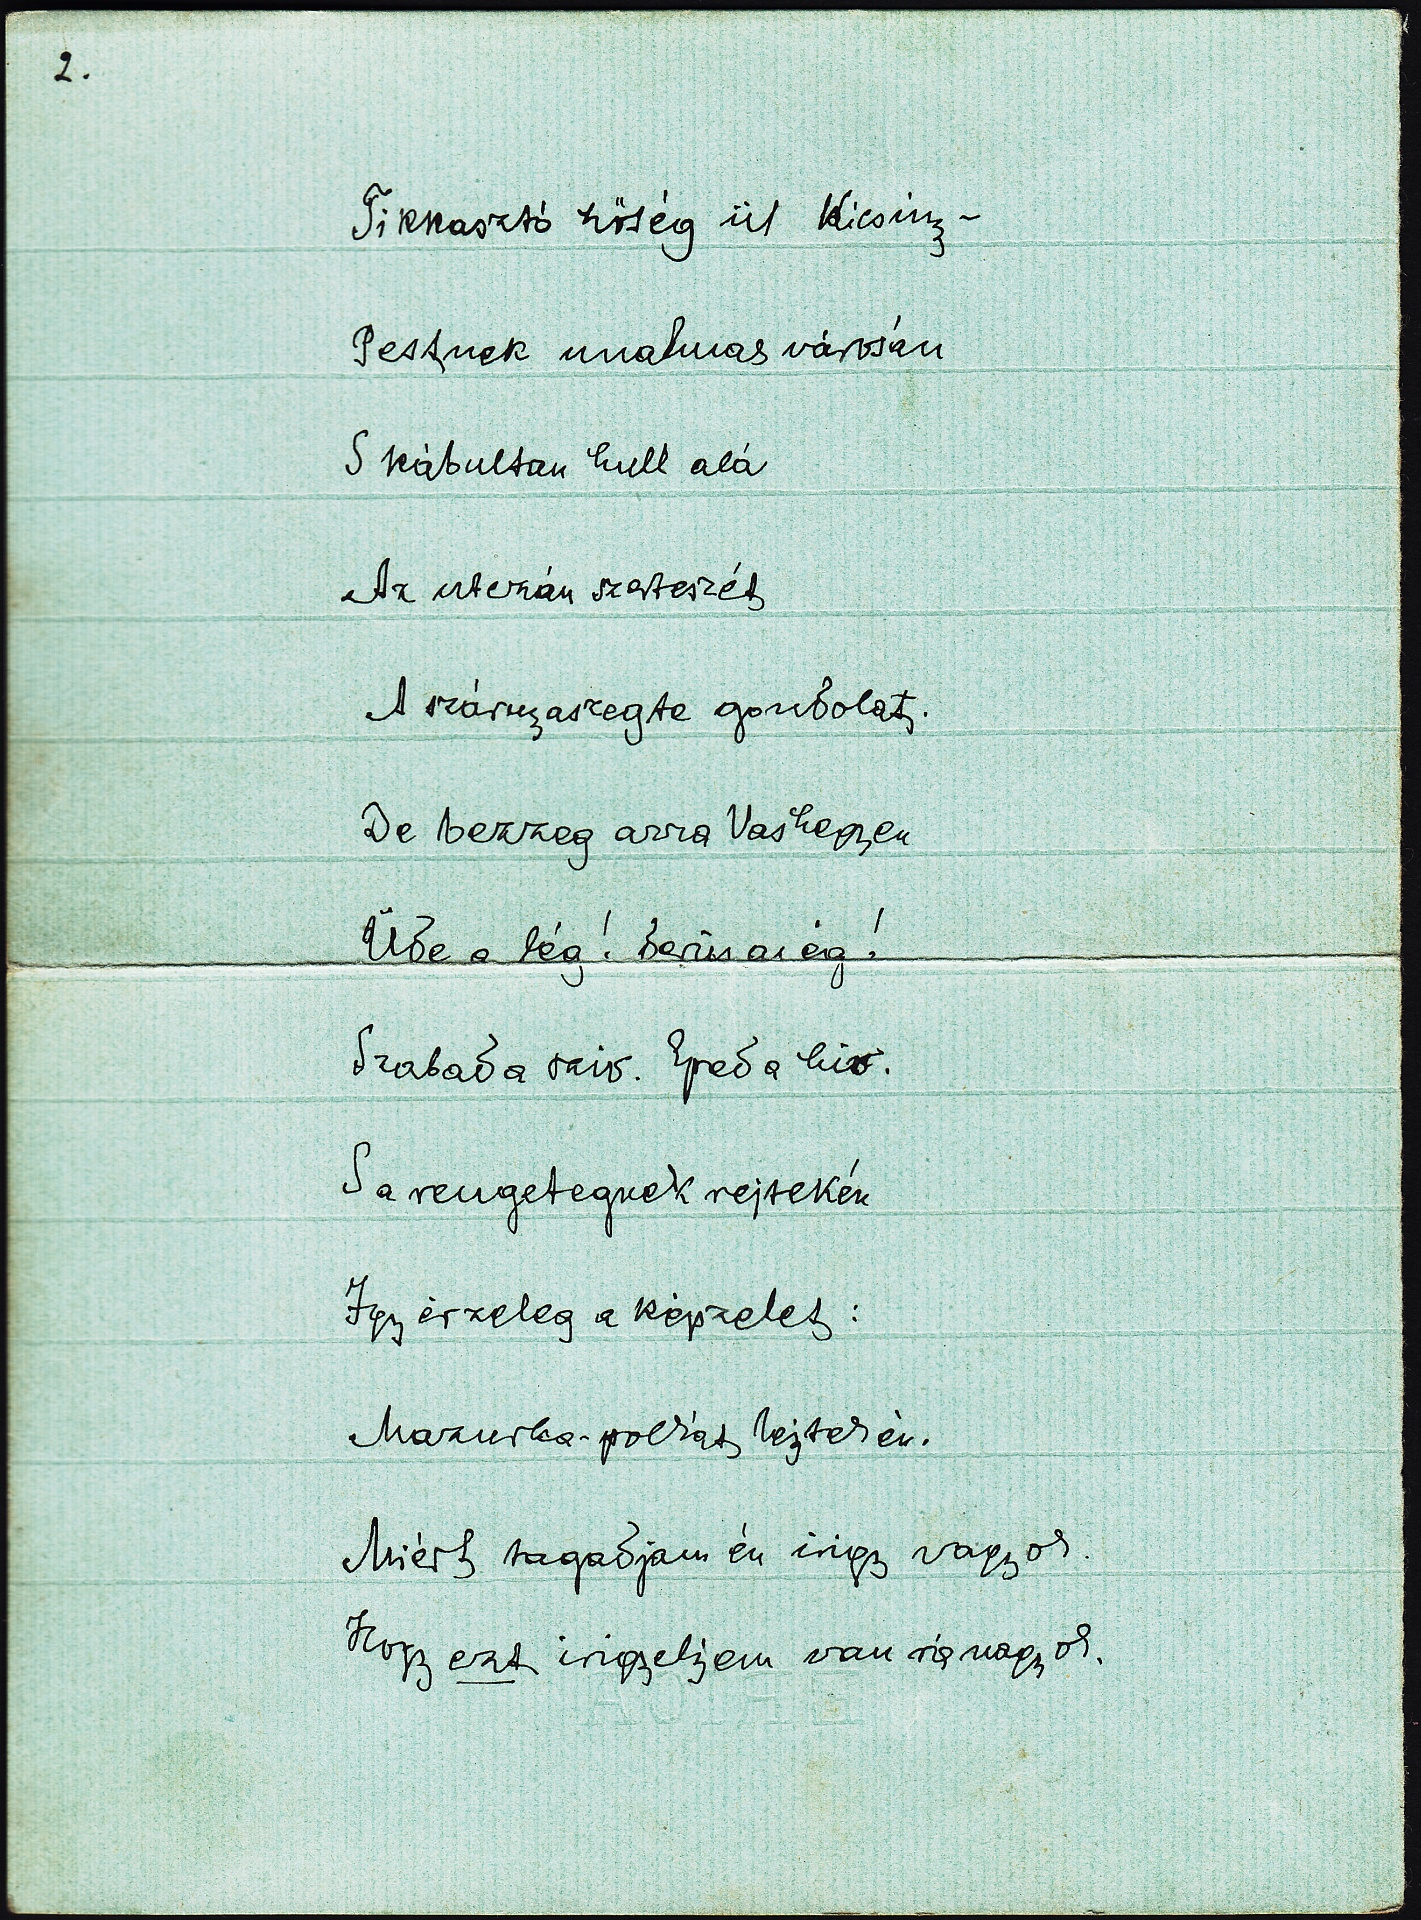 2.
Tikkasztó hőség ül Kicsiny-
Pestnek unalmas városán
S kábultan hull alá
Az utczán szerteszét
A szárnyaszegte gondolat.
De bezzeg arra Vashegyen
Üde a lég! derüs az ég!
Szabad a sziv. Eped a hiv.
S a rengetegnek rejtekén
Igy érzeleg a képzelet:
Mazurka-polkát lejtekén.
Miért tagadjam én irigy vagyok.
Hogy ezt irigyeljem van rá nagy ok.